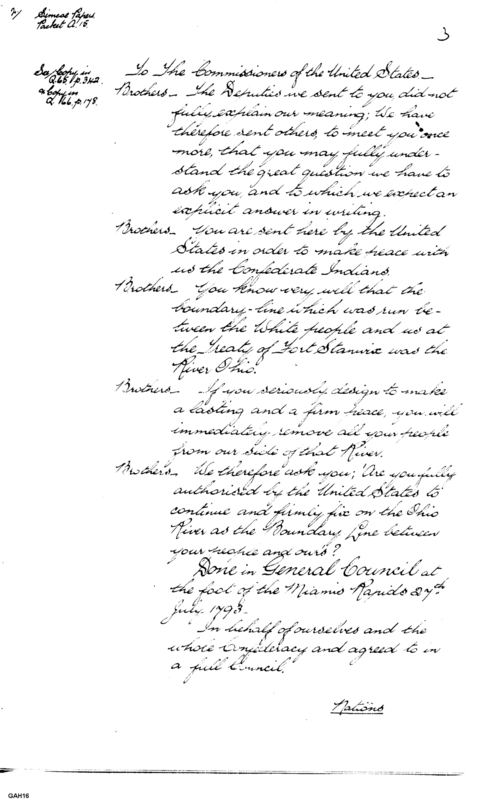 2/
Simcoe Papers
Packet A. 15.
3
See Copy in
Q 65, p. 342.
& Copy in
Q 166. p. 178.
To The Commissioners of the United States_
Brothers_ The Deputies we sent to you, did not
fully explain our meaning; We have
therefore sent others, to meet you once
more, that you may fully under-
stand the great question we have to
ask you, and to which we expect an
explicit answer in writing.
Brothers_ You are sent here by the United
States in order to make peace with
us the Confederate Indians.
Brothers_ You know very well that the
boundary-line which was run be-
tween the White people and us at
the Treaty of Fort Stanwix was the
River Ohio.
Brothers_ If you seriously design to make
a lasting and a firm peace, you will
immediately remove all your people
from our side of that River.
Brothers_ We therefore ask you; Are you fully
authorised by the United States to
continue and firmly fix on the Ohio
River as the Boundary Line between
your people and ours?
Done in General Council at
the foot of the Miamis Rapids 27th
July. 1793_
In behalf of ourselves and the
whole Confederacy and agreed to in
a full Council.
Nations
GAH16